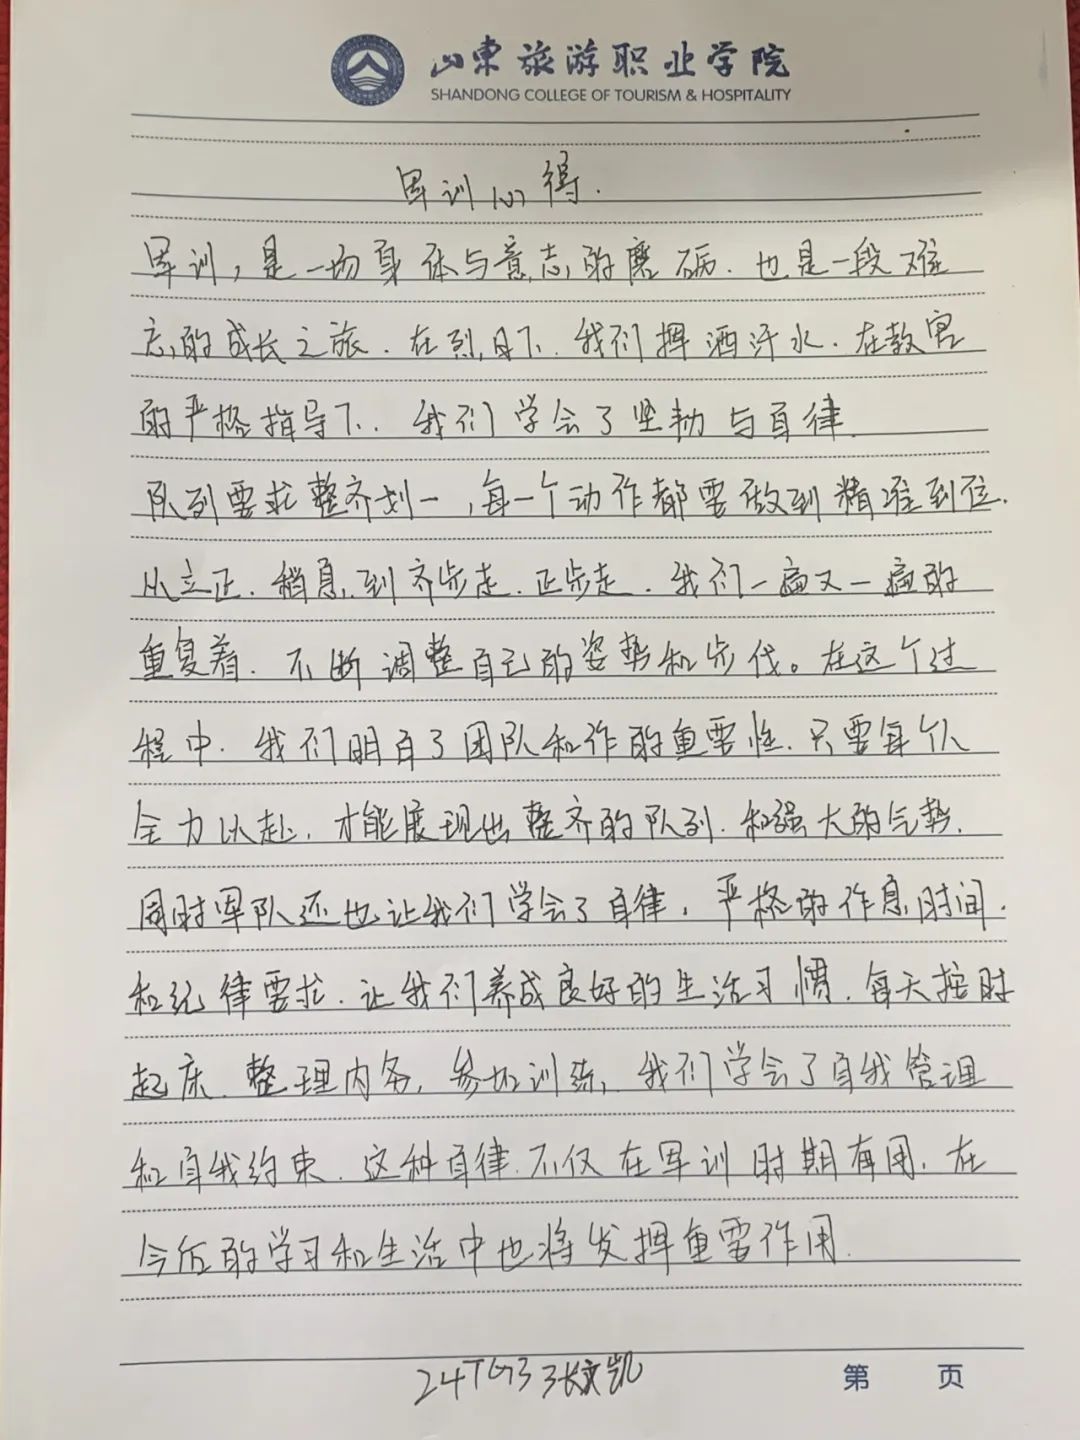 山东旅游职业学院
SHANDONG COLLEGE OF TOURISM & HOSPITALITY
军训心得.
军训,是一场身体与意志的磨砺.也是一段难
忘的成长之旅.在烈日下.我们挥洒汗水.在教官
的严格指导下.我们学会了坚韧与自律.
队列要求整齐划一,每一个动作都要做到精准到位.
从立正.稍息.到齐步走.正步走.我们一遍又一遍的
重复着.不断调整自己的姿势和步伐。在这个过
程中.我们明白了团队和作的重要性.只要每个人
全力以赴.才能展现出整齐的队列.和强大的气势.
同时军队还也让我们学会了自律,严格的作息时间.
和纪律要求.让我们养成良好的生活习惯.每天按时
起床.整理内务,参加训练,我们学会了自我管理
和自我约束.这种自律.不仅在军训时期有用.在
今后的学习和生活中也将发挥重要作用.
24TG3 张文凯
第 页